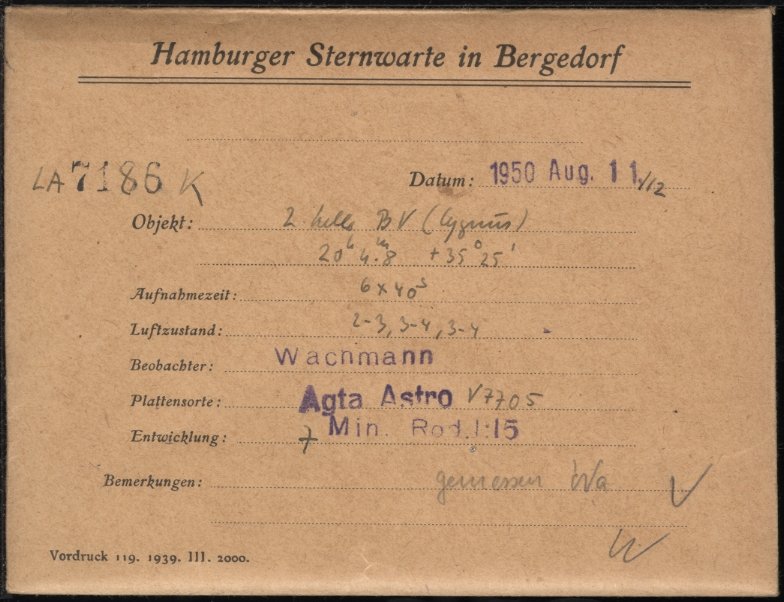 Hamburger Sternwarte in Bergedorf
LA 7186 K
Datum: 1950 Aug. 11./12
Objekt: 2 helle BV (Cygnus)
20ʰ 4.ᵐ8 +35° 25'
Aufnahmezeit: 6 x 40ˢ
Luftzustand: 2-3, 3-4, 3-4
Beobachter: Wachmann
Plattensorte: Agfa Astro V7705
Entwicklung: 7 Min. Rod. 1:15
Bemerkungen: gemessen Wa
Vordruck 119. 1939. III. 2000.